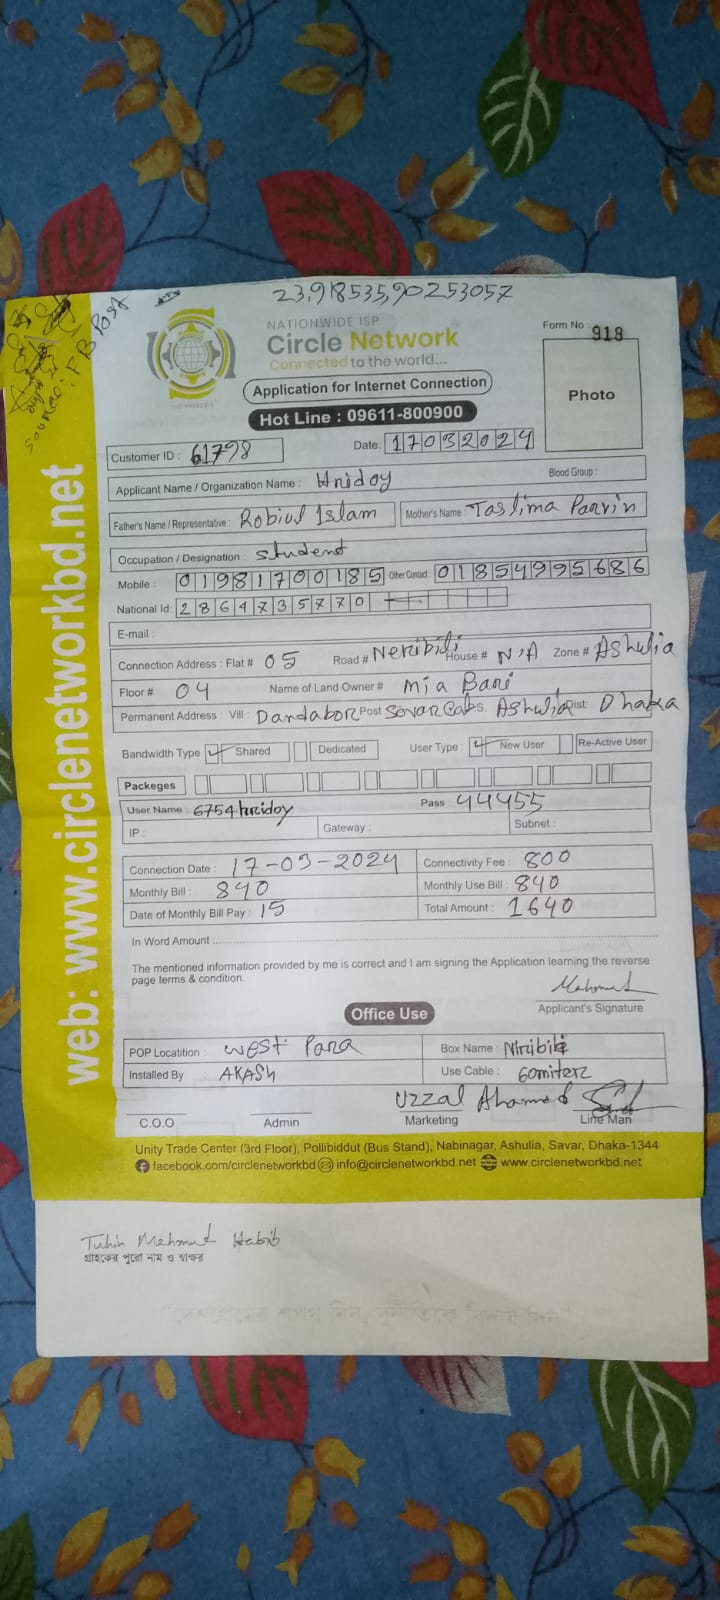 23.918535,90253057
Source: FB Post
NATIONWIDE ISP
Circle Network
Connected to the world....
Form No 918
Application for Internet Connection
Photo
Hot Line : 09611-800900
Customer ID : 61798 Date: 17032024
Applicant Name / Organization Name : Hridoy Blood Group :
Father's Name / Representative : Robiul Islam Mother's Name : Taslima Parvin
Occupation / Designation : Student
Mobile : 01981700185 Other Contact : 01854995686
National Id: 2864735770
E-mail :
Connection Address : Flat # 05 Road # Neribili House # N/A Zone # Ashulia
Floor # 04 Name of Land Owner # Mia Bari
Permanent Address : Vill : Dandabor Post Savar P.s. Ashulia Dist: Dhaka
Bandwidth Type Shared Dedicated User Type : New User Re-Active User
Packeges
User Name : 6754hridoy Pass : 44455
IP : Gateway : Subnet :
Connection Date : 17-03-2024 Connectivity Fee : 800
Monthly Bill : 840 Monthly Use Bill : 840
Date of Monthly Bill Pay : 15 Total Amount : 1640
In Word Amount :
The mentioned information provided by me is correct and I am signing the Application learning the reverse
page terms & condition.
Mahmud
Applicant's Signature
Office Use
POP Locatition : West Para Box Name : Niribili
Installed By : AKASH Use Cable : 60miter
Uzzal Ahamed
C.O.O Admin Marketing Line Man
Unity Trade Center (3rd Floor), Pollibiddut (Bus Stand), Nabinagar, Ashulia, Savar, Dhaka-1344
facebook.com/circlenetworkbd info@circlenetworkbd.net www.circlenetworkbd.net
web: www.circlenetworkbd.net
Tuhin Mahmud Habib
গ্রাহকের পুরো নাম ও স্বাক্ষর